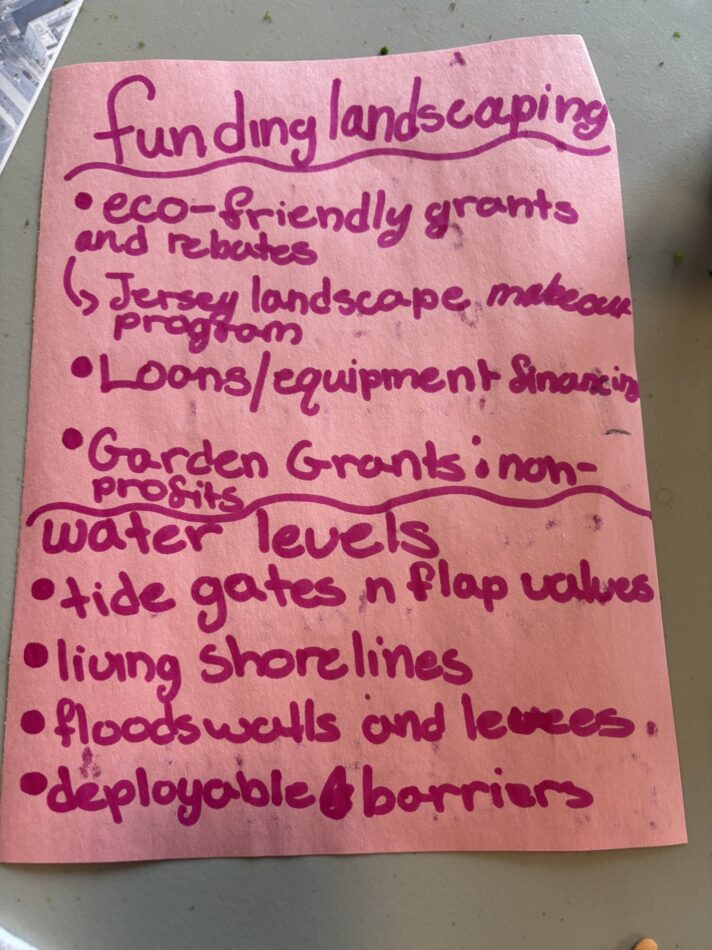 funding landscaping
• eco-friendly grants
and rebates
↳ Jersey landscape makeour
program
• Loans/equipment financing
• Garden Grants i non-
profits
water levels
• tide gates n flap valves
• living shorelines
• floodswalls and levees.
• deployable barriers